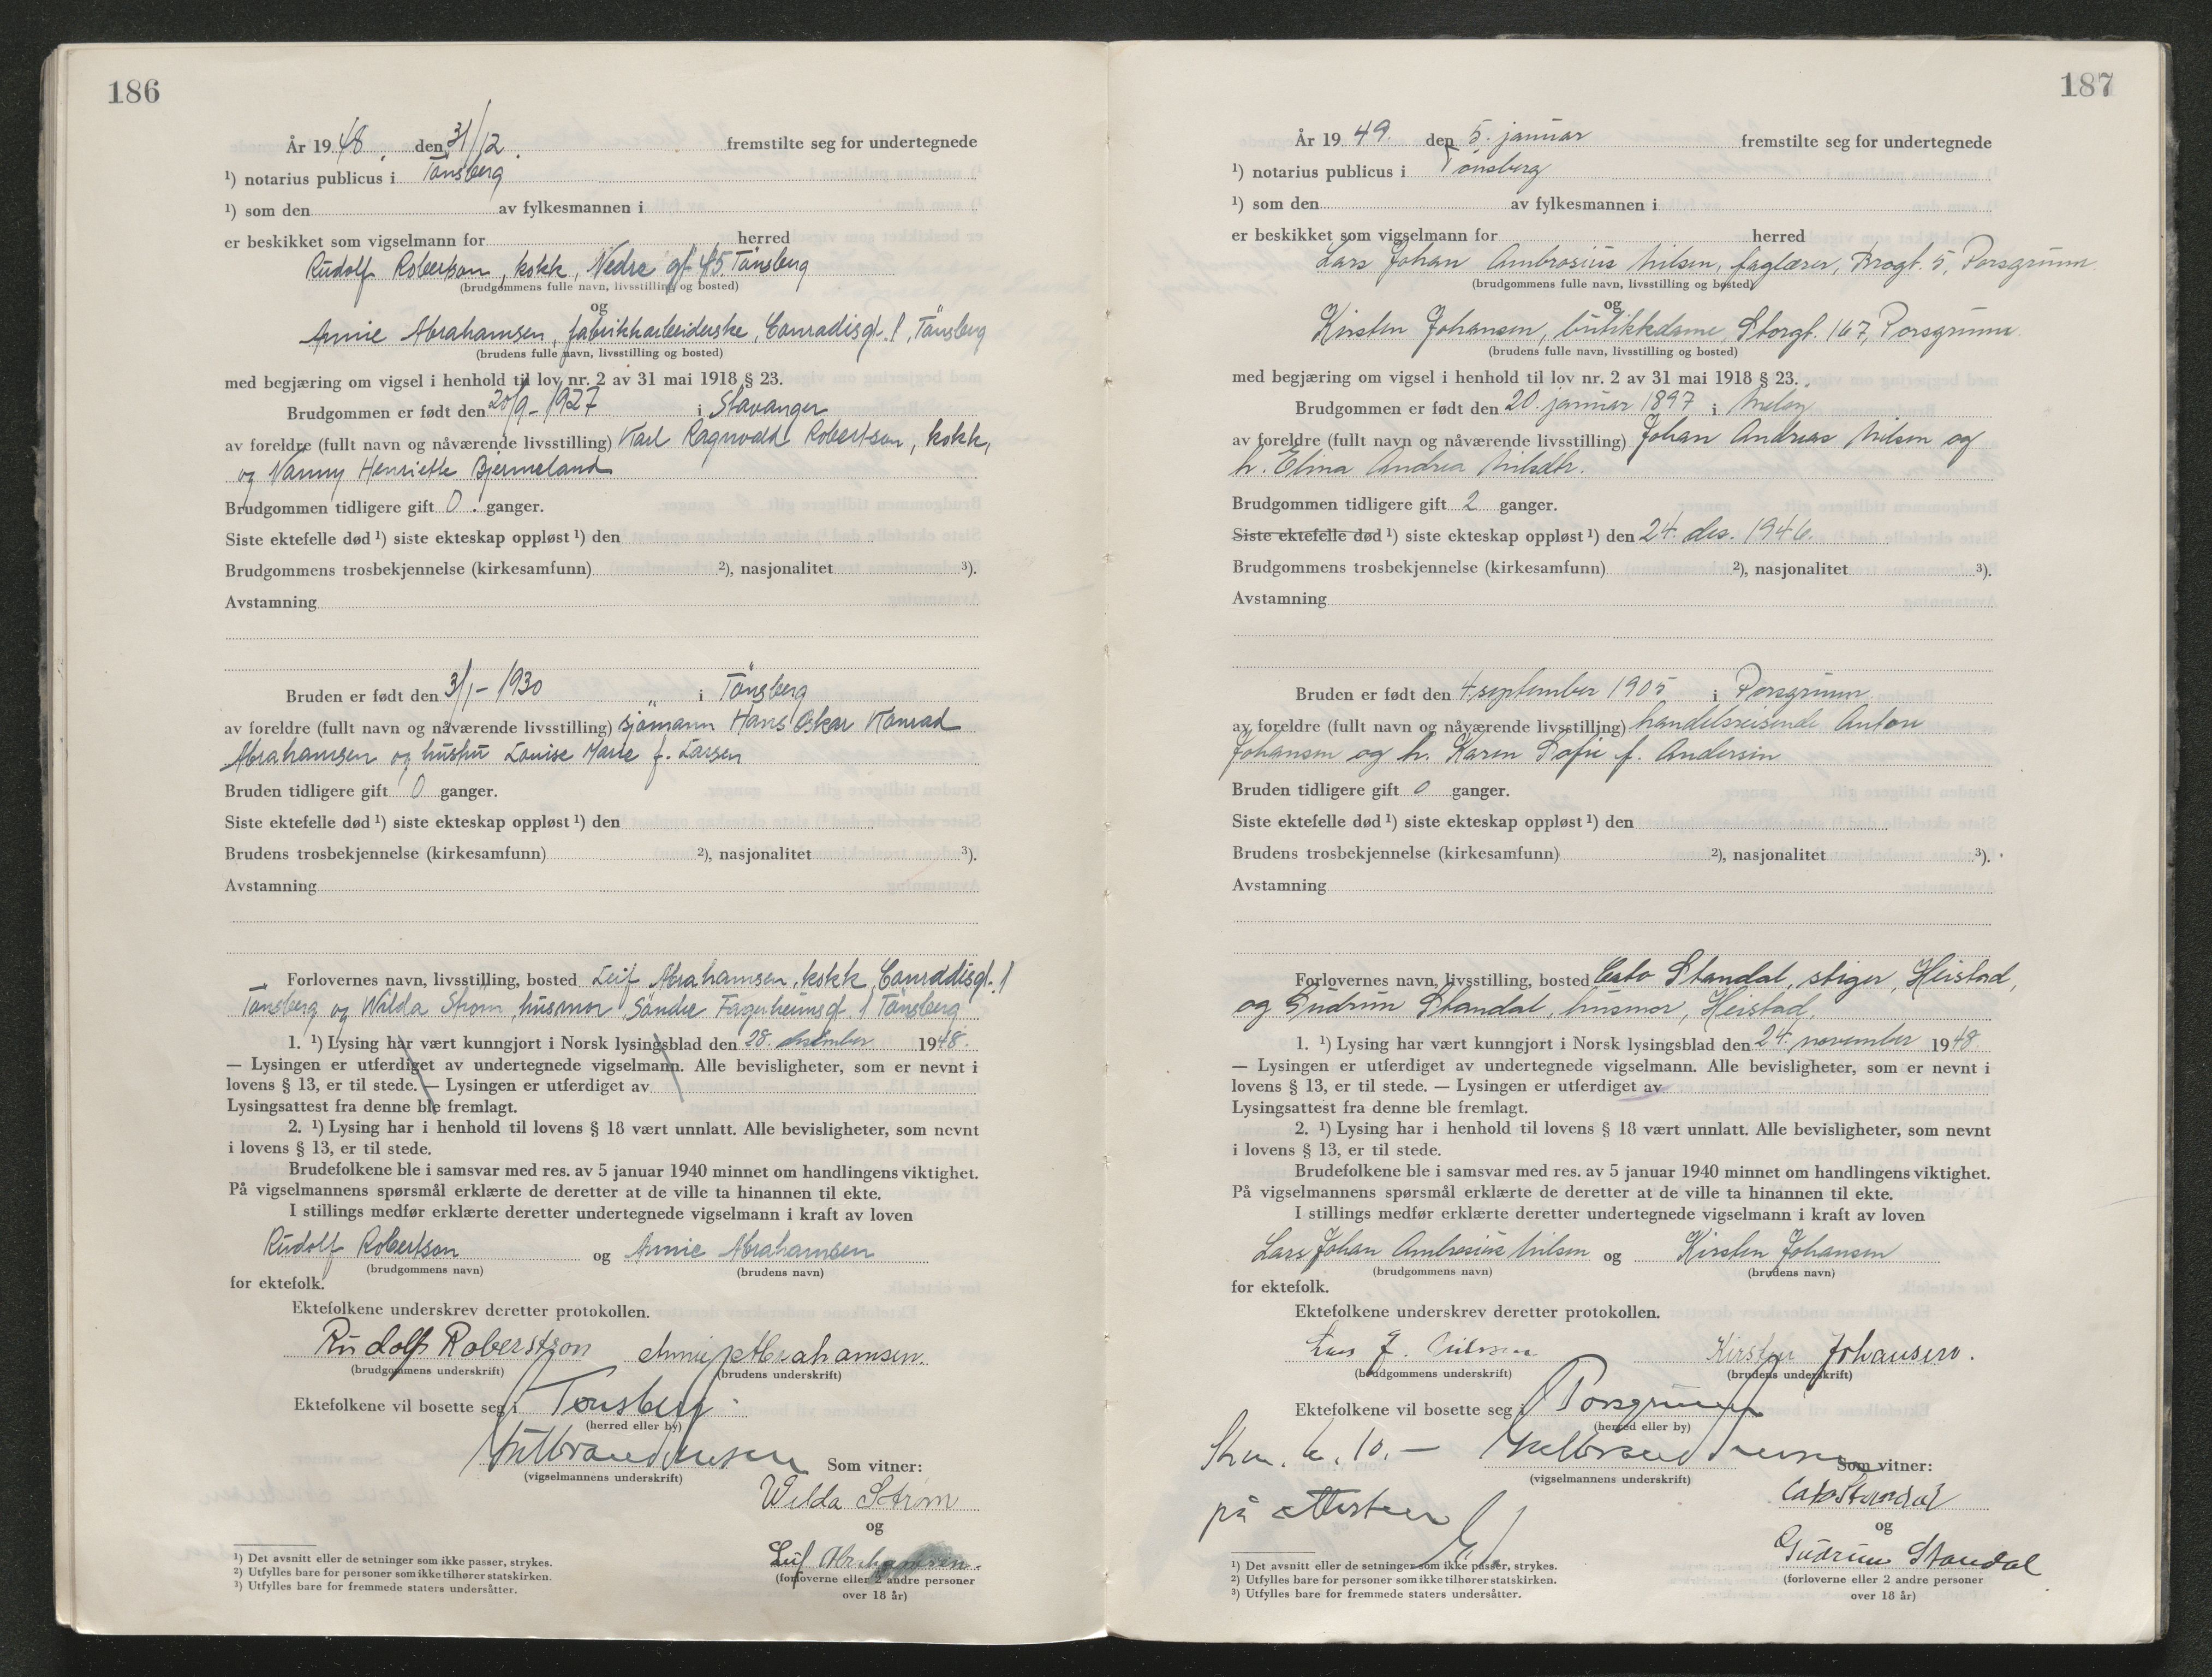 186
År 1948. den 31/12. fremstilte seg for undertegnede
¹) notarius publicus i Tönsberg
¹) som den av fylkesmannen i
er beskikket som vigselmann for herred
Rudolf Robertson, kokk, Nedre gt. 45 Tönsberg
(brudgommens fulle navn, livsstilling og bosted)
og
Annie Abrahamsen, fabrikkarbeiderske, Conradisgt. 1, Tönsberg
(brudens fulle navn, livsstilling og bosted)
med begjæring om vigsel i henhold til lov nr. 2 av 31 mai 1918 § 23.
Brudgommen er født den 20/9 - 1927 i Stavanger
av foreldre (fullt navn og nåværende livsstilling) Karl Ragnvald Robertson, kokk,
og Nanny Henriette Bjermeland
Brudgommen tidligere gift 0. ganger.
Siste ektefelle død ¹) siste ekteskap oppløst ¹) den
Brudgommens trosbekjennelse (kirkesamfunn) ²), nasjonalitet ³).
Avstamning
Bruden er født den 3/1 - 1930 i Tönsberg
av foreldre (fullt navn og nåværende livsstilling) sjömann Hans Oskar Konrad
Abrahamsen og hustru Louise Marie f. Lassen
Bruden tidligere gift 0 ganger.
Siste ektefelle død ¹) siste ekteskap oppløst ¹) den
Brudens trosbekjennelse (kirkesamfunn) ²), nasjonalitet ³).
Avstamning
Forlovernes navn, livsstilling, bosted Leif Abrahamsen, kokk, Conradisgt. 1
Tönsberg og Wilda Strøm, husmor, Söndre Fagerheimsgt. 1 Tönsberg
1. ¹) Lysing har vært kunngjort i Norsk lysingsblad den 28. desember 1948.
— Lysingen er utferdiget av undertegnede vigselmann. Alle bevisligheter, som er nevnt i
lovens § 13, er til stede. — Lysingen er utferdiget av
Lysingsattest fra denne ble fremlagt.
2. ¹) Lysing har i henhold til lovens § 18 vært unnlatt. Alle bevisligheter, som nevnt
i lovens § 13, er til stede.
Brudefolkene ble i samsvar med res. av 5 januar 1940 minnet om handlingens viktighet.
På vigselmannens spørsmål erklærte de deretter at de ville ta hinannen til ekte.
I stillings medfør erklærte deretter undertegnede vigselmann i kraft av loven
Rudolf Robertson og Annie Abrahamsen
(brudgommens navn) (brudens navn)
for ektefolk.
Ektefolkene underskrev deretter protokollen.
Rudolf Roberstson Annie Abrahamsen.
(brudgommens underskrift) (brudens underskrift)
Ektefolkene vil bosette seg i Tönsberg
(herred eller by)
(vigselmannens underskrift) Som vitner:
Wilda Strøm
og
Leif Abrahamsen.
(forloverne eller 2 andre personer
over 18 år)
¹) Det avsnitt eller de setninger som ikke passer, strykes.
²) Utfylles bare for personer som ikke tilhører statskirken.
³) Utfylles bare for fremmede staters undersåtter.
187
År 1949. den 5. januar fremstilte seg for undertegnede
¹) notarius publicus i Tönsberg
¹) som den av fylkesmannen i
er beskikket som vigselmann for herred
Lars Johan Ambrosius Nilsen, faglærer, 5, Porsgrunn
(brudgommens fulle navn, livsstilling og bosted)
og
Kirsten Johansen, butikkdame, Storgt. 167, Porsgrunn
(brudens fulle navn, livsstilling og bosted)
med begjæring om vigsel i henhold til lov nr. 2 av 31 mai 1918 § 23.
Brudgommen er født den 20. januar 1897 i Meløy
av foreldre (fullt navn og nåværende livsstilling) Johan Andreas Nilsen og
h. Elina Andrea Nilsdtr.
Brudgommen tidligere gift 2 ganger.
Siste ektefelle død ¹) siste ekteskap oppløst ¹) den 24. des. 1946.
Brudgommens trosbekjennelse (kirkesamfunn) ²), nasjonalitet ³).
Avstamning
Bruden er født den 4. september 1905 i Porsgrunn
av foreldre (fullt navn og nåværende livsstilling) handelsreisende Anton
Johansen og h. Karen Sofie f. Andersen
Bruden tidligere gift 0 ganger.
Siste ektefelle død ¹) siste ekteskap oppløst ¹) den
Brudens trosbekjennelse (kirkesamfunn) ²), nasjonalitet ³).
Avstamning
Forlovernes navn, livsstilling, bosted Cato Standal, stiger, Heistad,
og Gudrun Standal, husmor, Heistad.
1. ¹) Lysing har vært kunngjort i Norsk lysingsblad den 24. november 1948.
— Lysingen er utferdiget av undertegnede vigselmann. Alle bevisligheter, som er nevnt i
lovens § 13, er til stede. — Lysingen er utferdiget av
Lysingsattest fra denne ble fremlagt.
2. ¹) Lysing har i henhold til lovens § 18 vært unnlatt. Alle bevisligheter, som nevnt
i lovens § 13, er til stede.
Brudefolkene ble i samsvar med res. av 5 januar 1940 minnet om handlingens viktighet.
På vigselmannens spørsmål erklærte de deretter at de ville ta hinannen til ekte.
I stillings medfør erklærte deretter undertegnede vigselmann i kraft av loven
Lars Johan Ambrosius Nilsen og Kirsten Johansen
(brudgommens navn) (brudens navn)
for ektefolk.
Ektefolkene underskrev deretter protokollen.
Lars J. Nilssen Kirsten Johansen.
(brudgommens underskrift) (brudens underskrift)
Ektefolkene vil bosette seg i Porsgrunn
(herred eller by)
10.-
(vigselmannens underskrift) Som vitner:
på attesten
Cato Standal
og
Gudrun Standal
(forloverne eller 2 andre personer
over 18 år)
¹) Det avsnitt eller de setninger som ikke passer, strykes.
²) Utfylles bare for personer som ikke tilhører statskirken.
³) Utfylles bare for fremmede staters undersåtter.